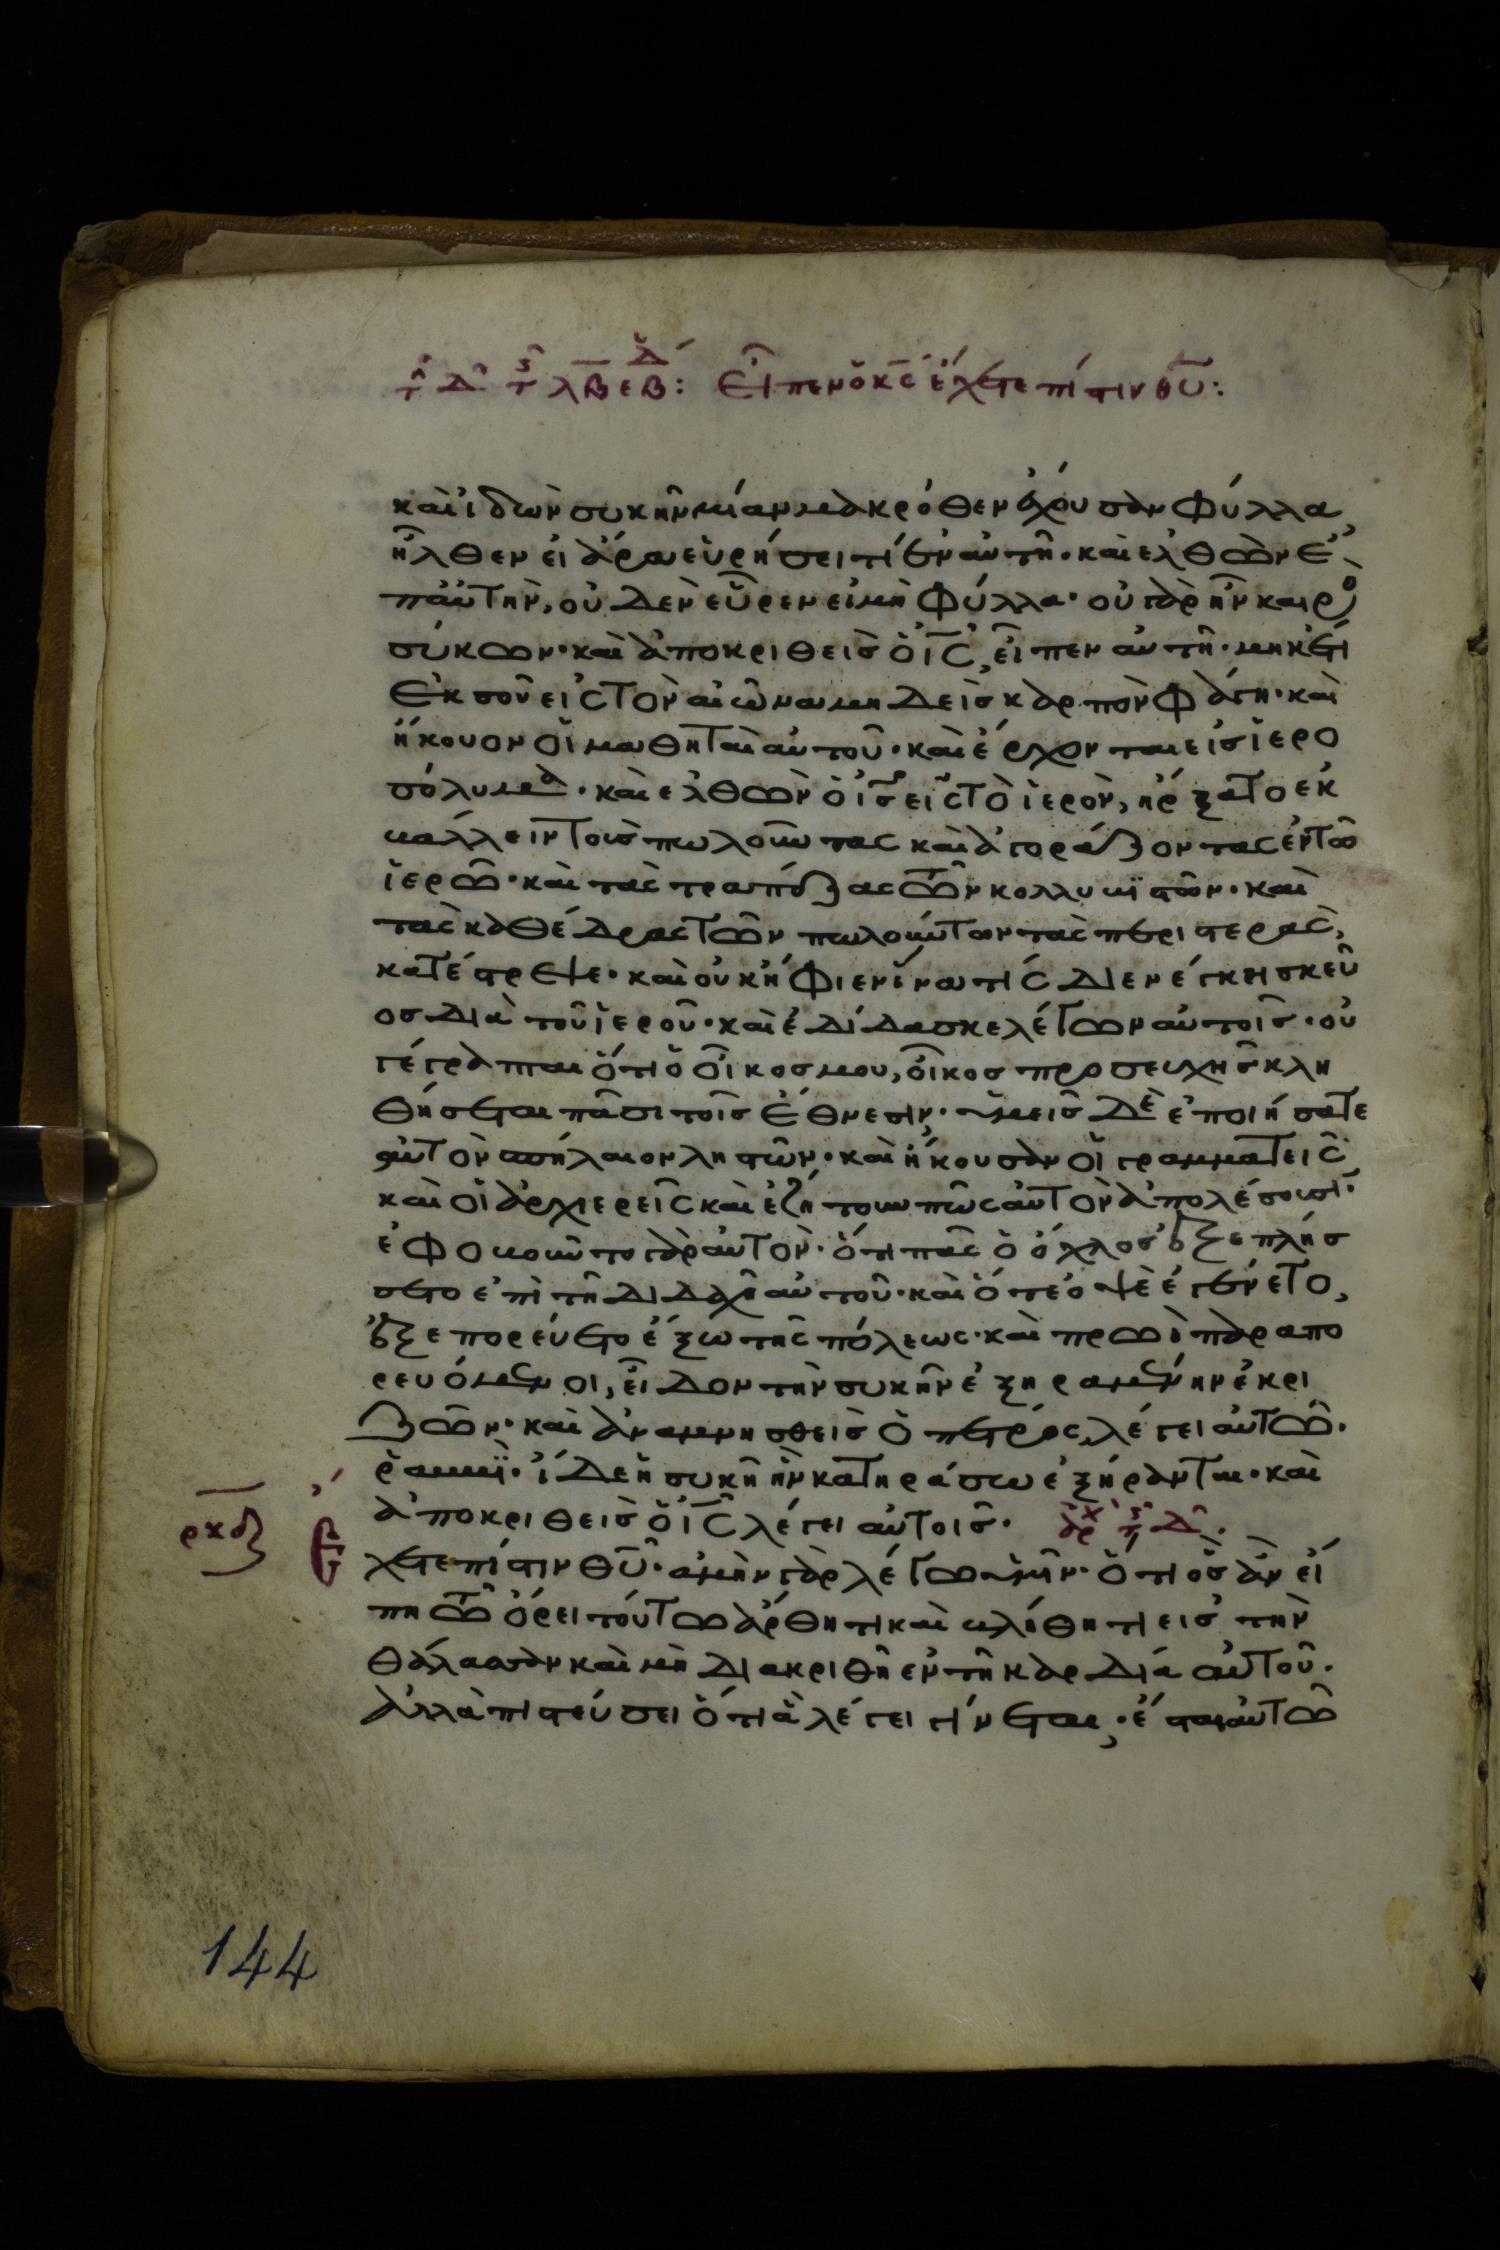 τῆ Δ τῆς λβ ε βδ: Εἶπεν ὁ κς ἔχετε πίστιν θυ:
καὶ ἰδὼν συκῆν μίαν μακρόθεν ἔχουσαν φύλλα,
ἦλθεν εἰ ἄρα εὑρήσει τί ἐν αὐτῆ· καὶ ἐλθὼν ἐ
π αὐτὴν, οὐδὲν εὗρεν εἰ μὴ φύλλα· οὐ γὰρ ἦν καιρὸ
σύκων· καὶ ἀποκριθεὶς ὁ ις, εἶπεν αὐτῆ· μηκέτι
ἐκ σοῦ εἰς τὸν αἰῶνα μηδεὶς καρπὸν φάγη· καὶ
ἤκουον οἱ μαθηταὶ αὐτοῦ· καὶ ἔρχονται εἰς ἱερο
σόλυμα· καὶ ἐλθὼν ὁ ις εἰς τὸ ἱερὸν, ἤρξατο ἐκ
βάλλειν τοὺς πωλοῦντας καὶ ἀγοράζοντας ἐν τῶ
ἱερῶ· καὶ τὰς τραπέζας τῶν κολλυβιστῶν· καὶ
τὰς καθέδρας τῶν πωλούντων τὰς περιστερὰς,
κατέστρεψε· καὶ οὐκ ἤφιεν ἵνα τίς διενέγκη σκεῦ
ος διὰ τοῦ ἱεροῦ· καὶ ἐδίδασκε λέγων αὐτοῖς· οὐ
γέγραπται ὅτι ὁ οἶκος μου, οἶκος προσευχῆς κλη
θήσεται πᾶσι τοῖς ἔθνεσιν· ὑμεῖς δὲ ἐποιήσατε
αὐτὸν σπήλαιον ληστῶν· καὶ ἤκουσαν οἱ γραμματεῖς
καὶ οἱ ἀρχιερεῖς καὶ ἐζήτουν πῶς αὐτὸν ἀπολέσουσι·
ἐφοβοῦντο γὰρ αὐτὸν· ὅτι πᾶς ὁ ὄχλος ἐξεπλήσ
σετο ἐπὶ τῆ διδαχῆ αὐτοῦ· καὶ ὅτε ὀψὲ ἐγένετο,
ἐξεπορεύετο ἔξω τῆς πόλεως· καὶ πρωὶ παραπο
ρευόμενοι, εἶδον τὴν συκῆν ἐξηραμμένην ἐκ ρι
ζῶν· καὶ ἀναμνησθεὶς ὁ πέτρος, λέγει αὐτῶ·
ῥαββὶ· ἴδε ἡ συκῆ ἣν κατηράσω ἐξήρανται· καὶ
ἀποκριθεὶς ὁ ις λέγει αὐτοῖς· ἀρχ τῆς Δ·
ρκδ Ἔ
χετε πίστιν θυ· ἀμὴν γὰρ λέγω ὑμῖν· ὅτι ὃς ἂν εἴ
πη τῶ ὄρει τούτω ἄρθητι καὶ βλήθητι εἰς τὴν
θάλασσαν καὶ μὴ διακριθῆ ἐν τῆ καρδία αὐτοῦ·
ἀλλὰ πιστεύσει ὅτι ἃ λέγει γίνεται· ἔσται αὐτῶ
144